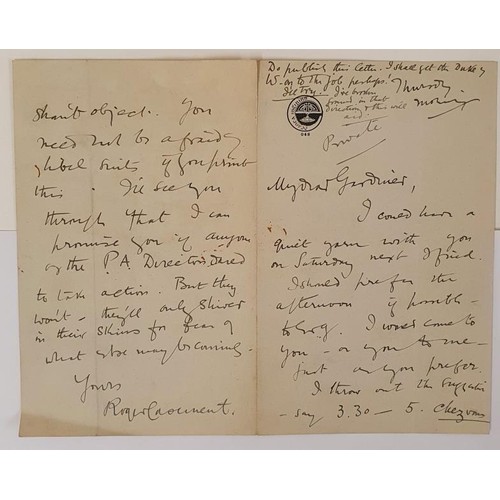 Do publish this letter. I shall get the Duke of
W. on to the job perhaps!
I'll try. I've broken
ground in that
direction & this will
aid.
Thursday
morning
Private
My dear Gardiner,
I could have a
quiet yarn with you
on Saturday next I find.
I should prefer the
afternoon if possible
I would come to
you - or you to me -
just as you prefer.
I throw out the suggestion
- say 3.30 - 5. Chez vous
shan't object. You
need not be afraid of
libel suits if you print
this. I'll see you
through that I can
promise you if anyone
of the P.A. Directors dared
to take action. But they
won't - they'll only shiver
in their skins for fear of
what else may be coming.
Yours
Roger Casement.